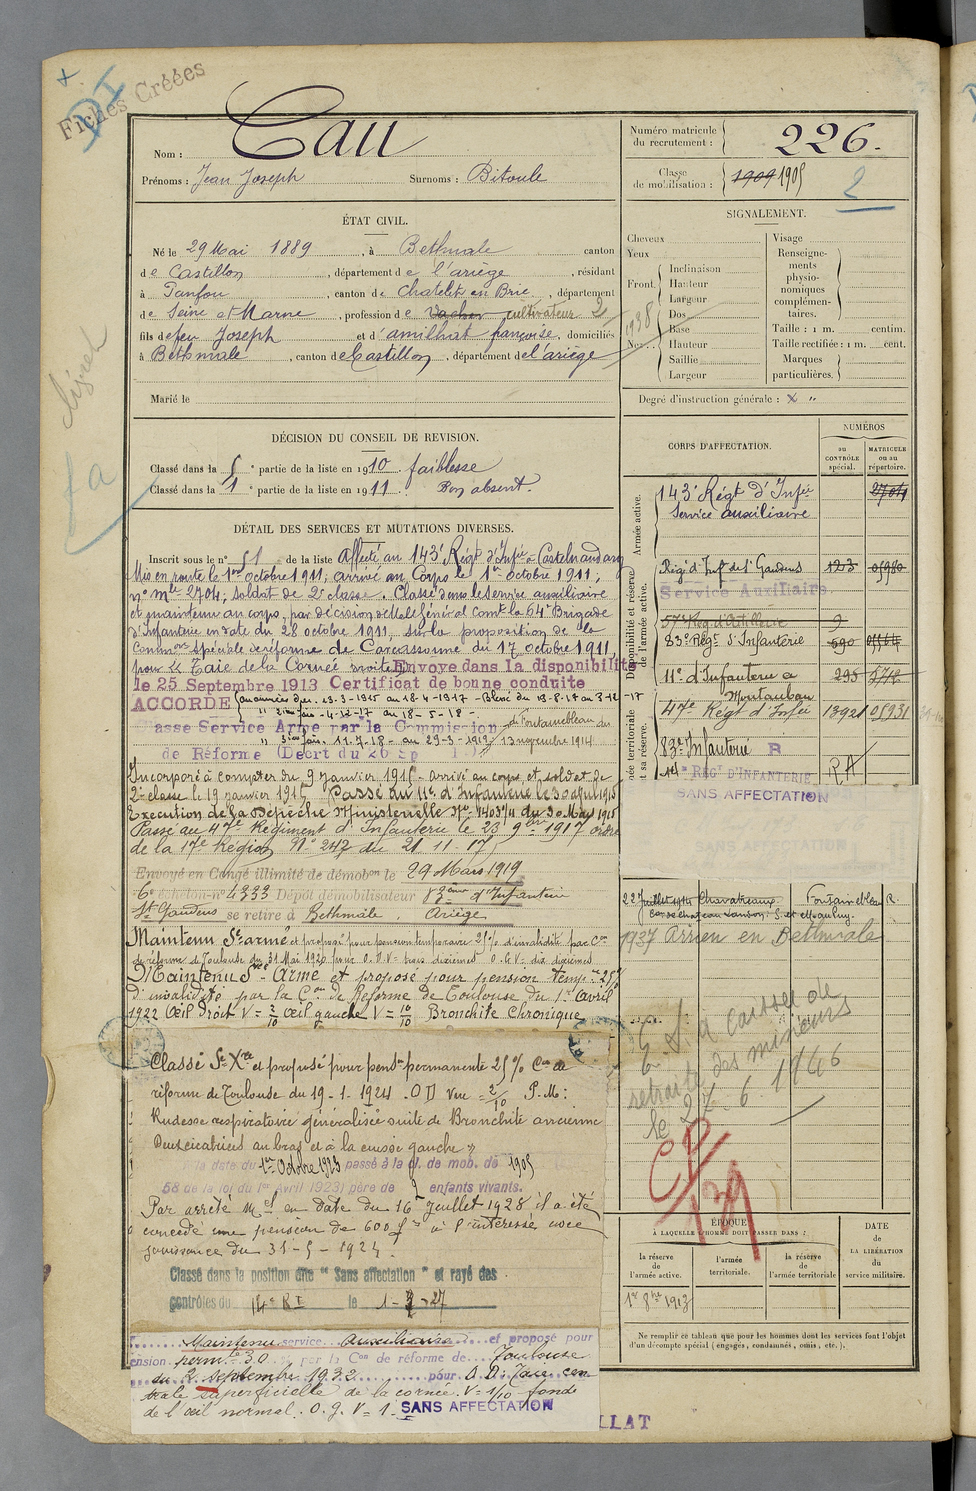 Fiches Créées
DI
Nom : Cau
Prénoms : Jean Joseph Surnoms : Bitoule
Numéro matricule du recrutement : 226.
Classe de mobilisation : 1909 1905
2
ÉTAT CIVIL.
Né le 29 Mai 1889, à Bethmale canton
de Castillon, département de l'ariège, résidant
à Panfou, canton de Chatelet en Brie, département
de Seine et Marne, profession de cultivateur 2
fils de feu Joseph et d'amilhat françoise, domiciliés
à Bethmale, canton de Castillon, département de l'ariège
Marié le
SIGNALEMENT.
Cheveux
Yeux
Front.
Inclinaison
Hauteur
Largeur
Nez.
Dos
Base
Hauteur
Saillie
Largeur
1938
Visage
Renseigne-
ments
physio-
nomiques
complémen-
taires.
Taille : 1 m. centim.
Taille rectifiée : 1 m. cent.
Marques
particulières.
Degré d'instruction générale : x "
DÉCISION DU CONSEIL DE REVISION.
Classé dans la 5e partie de la liste en 1910. faiblesse
Classé dans la 1e partie de la liste en 1911. Bon absent.
DÉTAIL DES SERVICES ET MUTATIONS DIVERSES.
Inscrit sous le n° 51 de la liste Affecté au 143e Régt d'Infie à Castelnaudary
Mis en route le 1er octobre 1911; arrivé au Corps le 1er octobre 1911;
n° mle 2704; soldat de 2e classe. Classé dans le Service auxiliaire
et maintenu au corps, par décision de M. le Général Comt la 64e Brigade
d'Infanterie en date du 28 octobre 1911, sur la proposition de la
Common spéciale de réforme de Carcassonne du 17 octobre 1911,
pour Taie de la Cornée droite. Envoyé dans la disponibilité
le 25 Septembre 1913 Certificat de bonne conduite
ACCORDÉ
aux armées du 23-3-1915 au 18-4-1917 - Blessé du 13-8-17 au 3-12-17
" 2ème fois - 4-12-17 au 18-5-18 -
Classé Service Armé par la Commission de Fontainebleau du
" 3ème fois. 11-7-18 - au 29-3-1919 13 novembre 1914
de Réforme (Décrt du 26 Sp
Incorporé à compter du 9 janvier 1915 - arrivé au corps et soldat de
2e classe le 19 janvier 1915. Passé au 11e d'Infanterie le 30 août 1915
Execution de la Dépêche Ministerielle No 14034 du 30 Mai 1915
Passé au 47e Régiment d'Infanterie le 23 9bre 1917 ordre
de la 17e Région No 242 du 21.11.17
Envoyé en Congé illimité de démobon le 29 Mars 1919
6e échelon n° 4333 Dépôt démobilisateur 83ème d'Infanterie
St Gaudens se retire à Bethmale, Ariège
Maintenu Sce armé et proposé pour pension temporaire 25% d'invalidité par Con
de réforme de Toulouse du 31 Mai 1920 pour O.D.V = trois dixièmes O.G.V = dix dixièmes
Maintenu Sce Armé et proposé pour pension tempre 25%
d'invalidité par la Con de Réforme de Toulouse du 1er Avril
1922 Œil droit V = 2/10 œil gauche V = 10/10 Bronchite Chronique
Classé Sce Xre et proposé pour penson permanente 25% Con de
réforme de Toulouse du 19-1-1924. OD Vue = 2/10 P.M:
Rudesse respiratoire généralisée suite de Bronchite ancienne
Deux cicatrices au bras et à la cuisse gauche
à la date du 1er Octobre 1923 passé à la cl. de mob. de 1905
58 de la loi du 1er Avril 1923) père de 2 enfants vivants.
Par arrêté Mel en date du 16 Juillet 1928 il a été
concédé une pension de 600f à l'intéressé avec
jouissance du 31-5-1924.
Classé dans la position dite " Sans affectation " et rayé des
contrôles du 14e RI le 1-3-27
Maintenu service Auxiliaire et proposé pour
pension perm. 30 % par la Con de réforme de Toulouse
du 2 septembre 1932 pour O.D: Taie cen
trale superficielle de la cornée. V = 1/10 fond
de l'œil normal. O.g. V = 1. SANS AFFECTATION
LLAT
CORPS D'AFFECTATION.
NUMÉROS
au CONTRÔLE spécial.
MATRICULE ou au répertoire.
Armée active.
143e Régt d'Infie 2704
Service auxiliaire
Disponibilité et réserve de l'armée active.
Régt d'Inf. de St Gaudens 123 05980
Service Auxiliaire
57e Rég. d'Artillerie
83e Régt d'Infanterie 590
11e d'Infanterie à Montauban 295
Armée territoriale et sa réserve.
47e Régt d'Infie 13921 05931
83e Infanterie R
14e RÉGt D'INFANTERIE R.A
SANS AFFECTATION
SANS AFFECTATION
22 Juillet 1914 Fontainebleau R.
1937 Arrien en Bethmale
à la caisse de
retraite des mineurs
le 27.6.1946
CR
139
ÉPOQUE
À LAQUELLE L'HOMME DOIT PASSER DANS :
la réserve de l'armée active.
l'armée territoriale.
la réserve de l'armée territoriale
DATE de LA LIBÉRATION du service militaire.
1er 8bre 1913
Ne remplir ce tableau que pour les hommes dont les services font l'objet
d'un décompte spécial (engagés, condamnés, omis, etc.).